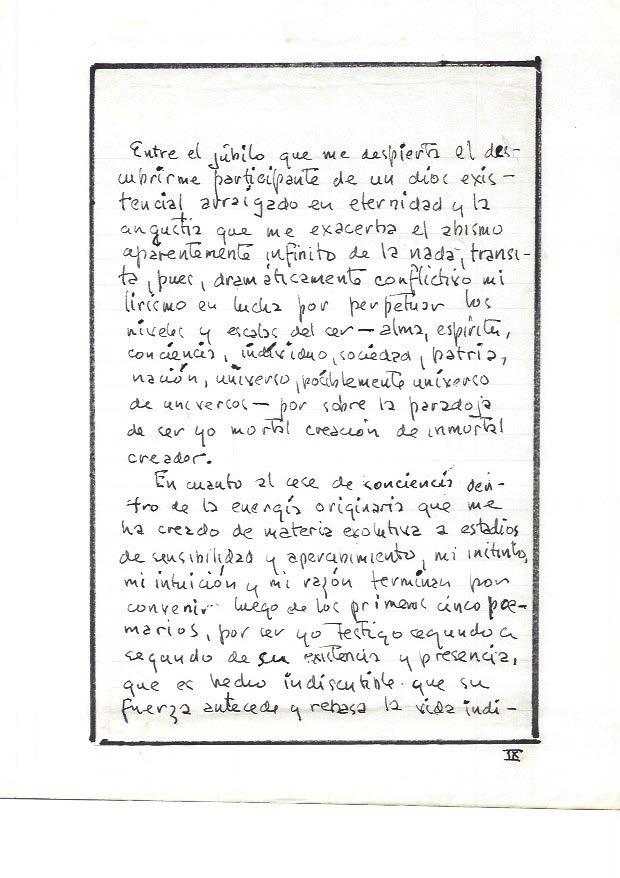 Entre el júbilo que me despierta el des-
cubrirme participante de un dios exis-
tencial arraigado en eternidad y la
angustia que me exacerba el abismo
aparentemente infinito de la nada, transi-
ta, pues, dramáticamente conflictivo mi
lirismo en lucha por perpetuar los
niveles y escalas del ser — alma, espíritu,
conciencia, individuo, sociedad, patria,
nación, universo, posiblemente universo
de universos — por sobre la paradoja
de ser yo mortal creación de inmortal
creador.
En cuanto al cese de conciencia den-
tro de la energía originaria que me
ha creado de materia evolutiva a estadios
de sensibilidad y apercibimiento, mi instinto,
mi intuición y mi razón terminan por
convenir luego de los primeros cinco poe-
marios, por ser yo testigo segundo a
segundo de su existencia y presencia,
que es hecho indiscutible que su
fuerza antecede y rebasa la vida indi-
IX